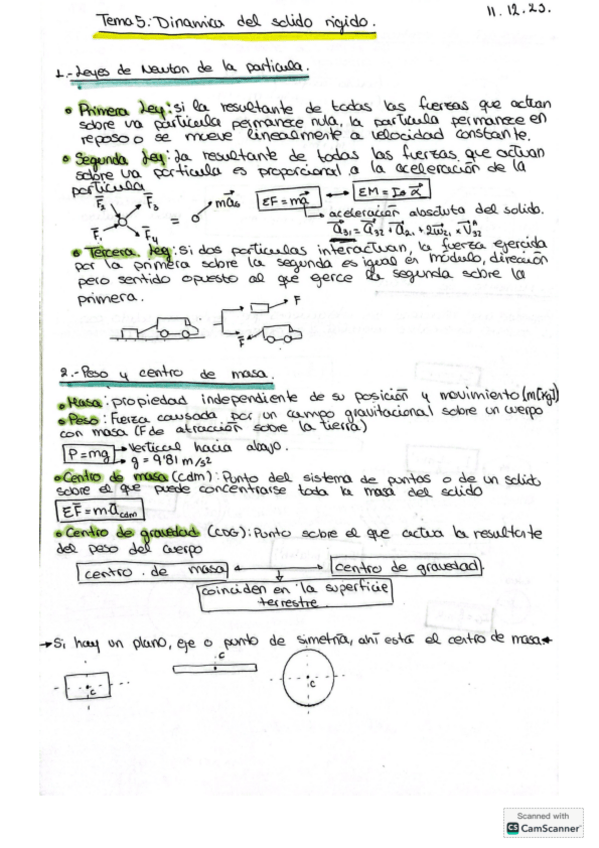 11.12.23.
Tema 5: Dinamica del solido rigido.
1.- Leyes de Newton de la particula.
• Primera Ley: si la resultante de todas las fuerzas que actuan
sobre va partícula permanece nula, la partícula permanece en
reposo o se mueve linealmente a velocidad constante.
• Segunda Ley: La resultante de todas las fuerzas, que actuan
sobre va partícula es proporcional a la aceleración de la
partícula
F₂ F₃ F₁ F₄ = maG ΣF=ma ↔ ΣM = IG α
→ aceleración absoluta del solido.
a31 = a32 + a21 + 2ω21 × V32
• Tercera Ley: Si dos particulas interactuan, la fuerza ejercida
por la primera sobre la segunda es igual en módulo, dirección
pero sentido opuesto al que ejerce la segunda sobre la
primera.
F
F
2.- Peso y centro de masa.
• Masa: propiedad independiente de su posición y movimiento (m[kg])
• Peso: Fuerza causada por un campo gravitacional sobre un cuerpo
con masa (F de atracción sobre la tierra)
P=mg → Vertical hacia abajo.
→ g = 9'81 m/s²
• Centro de masa (cdm): Punto del sistema de puntos o de un solido
sobre el que puede concentrarse toda la masa del solido
ΣF=ma cdm
• Centro de gravedad (COG): Punto sobre el que actua la resultante
del peso del cuerpo
centro de masa ↔ centro de gravedad
coinciden en la superficie
terrestre
→ Si hay un plano, eje o punto de simetría, ahí está el centro de masa
c
c
c
Scanned with
CS CamScanner